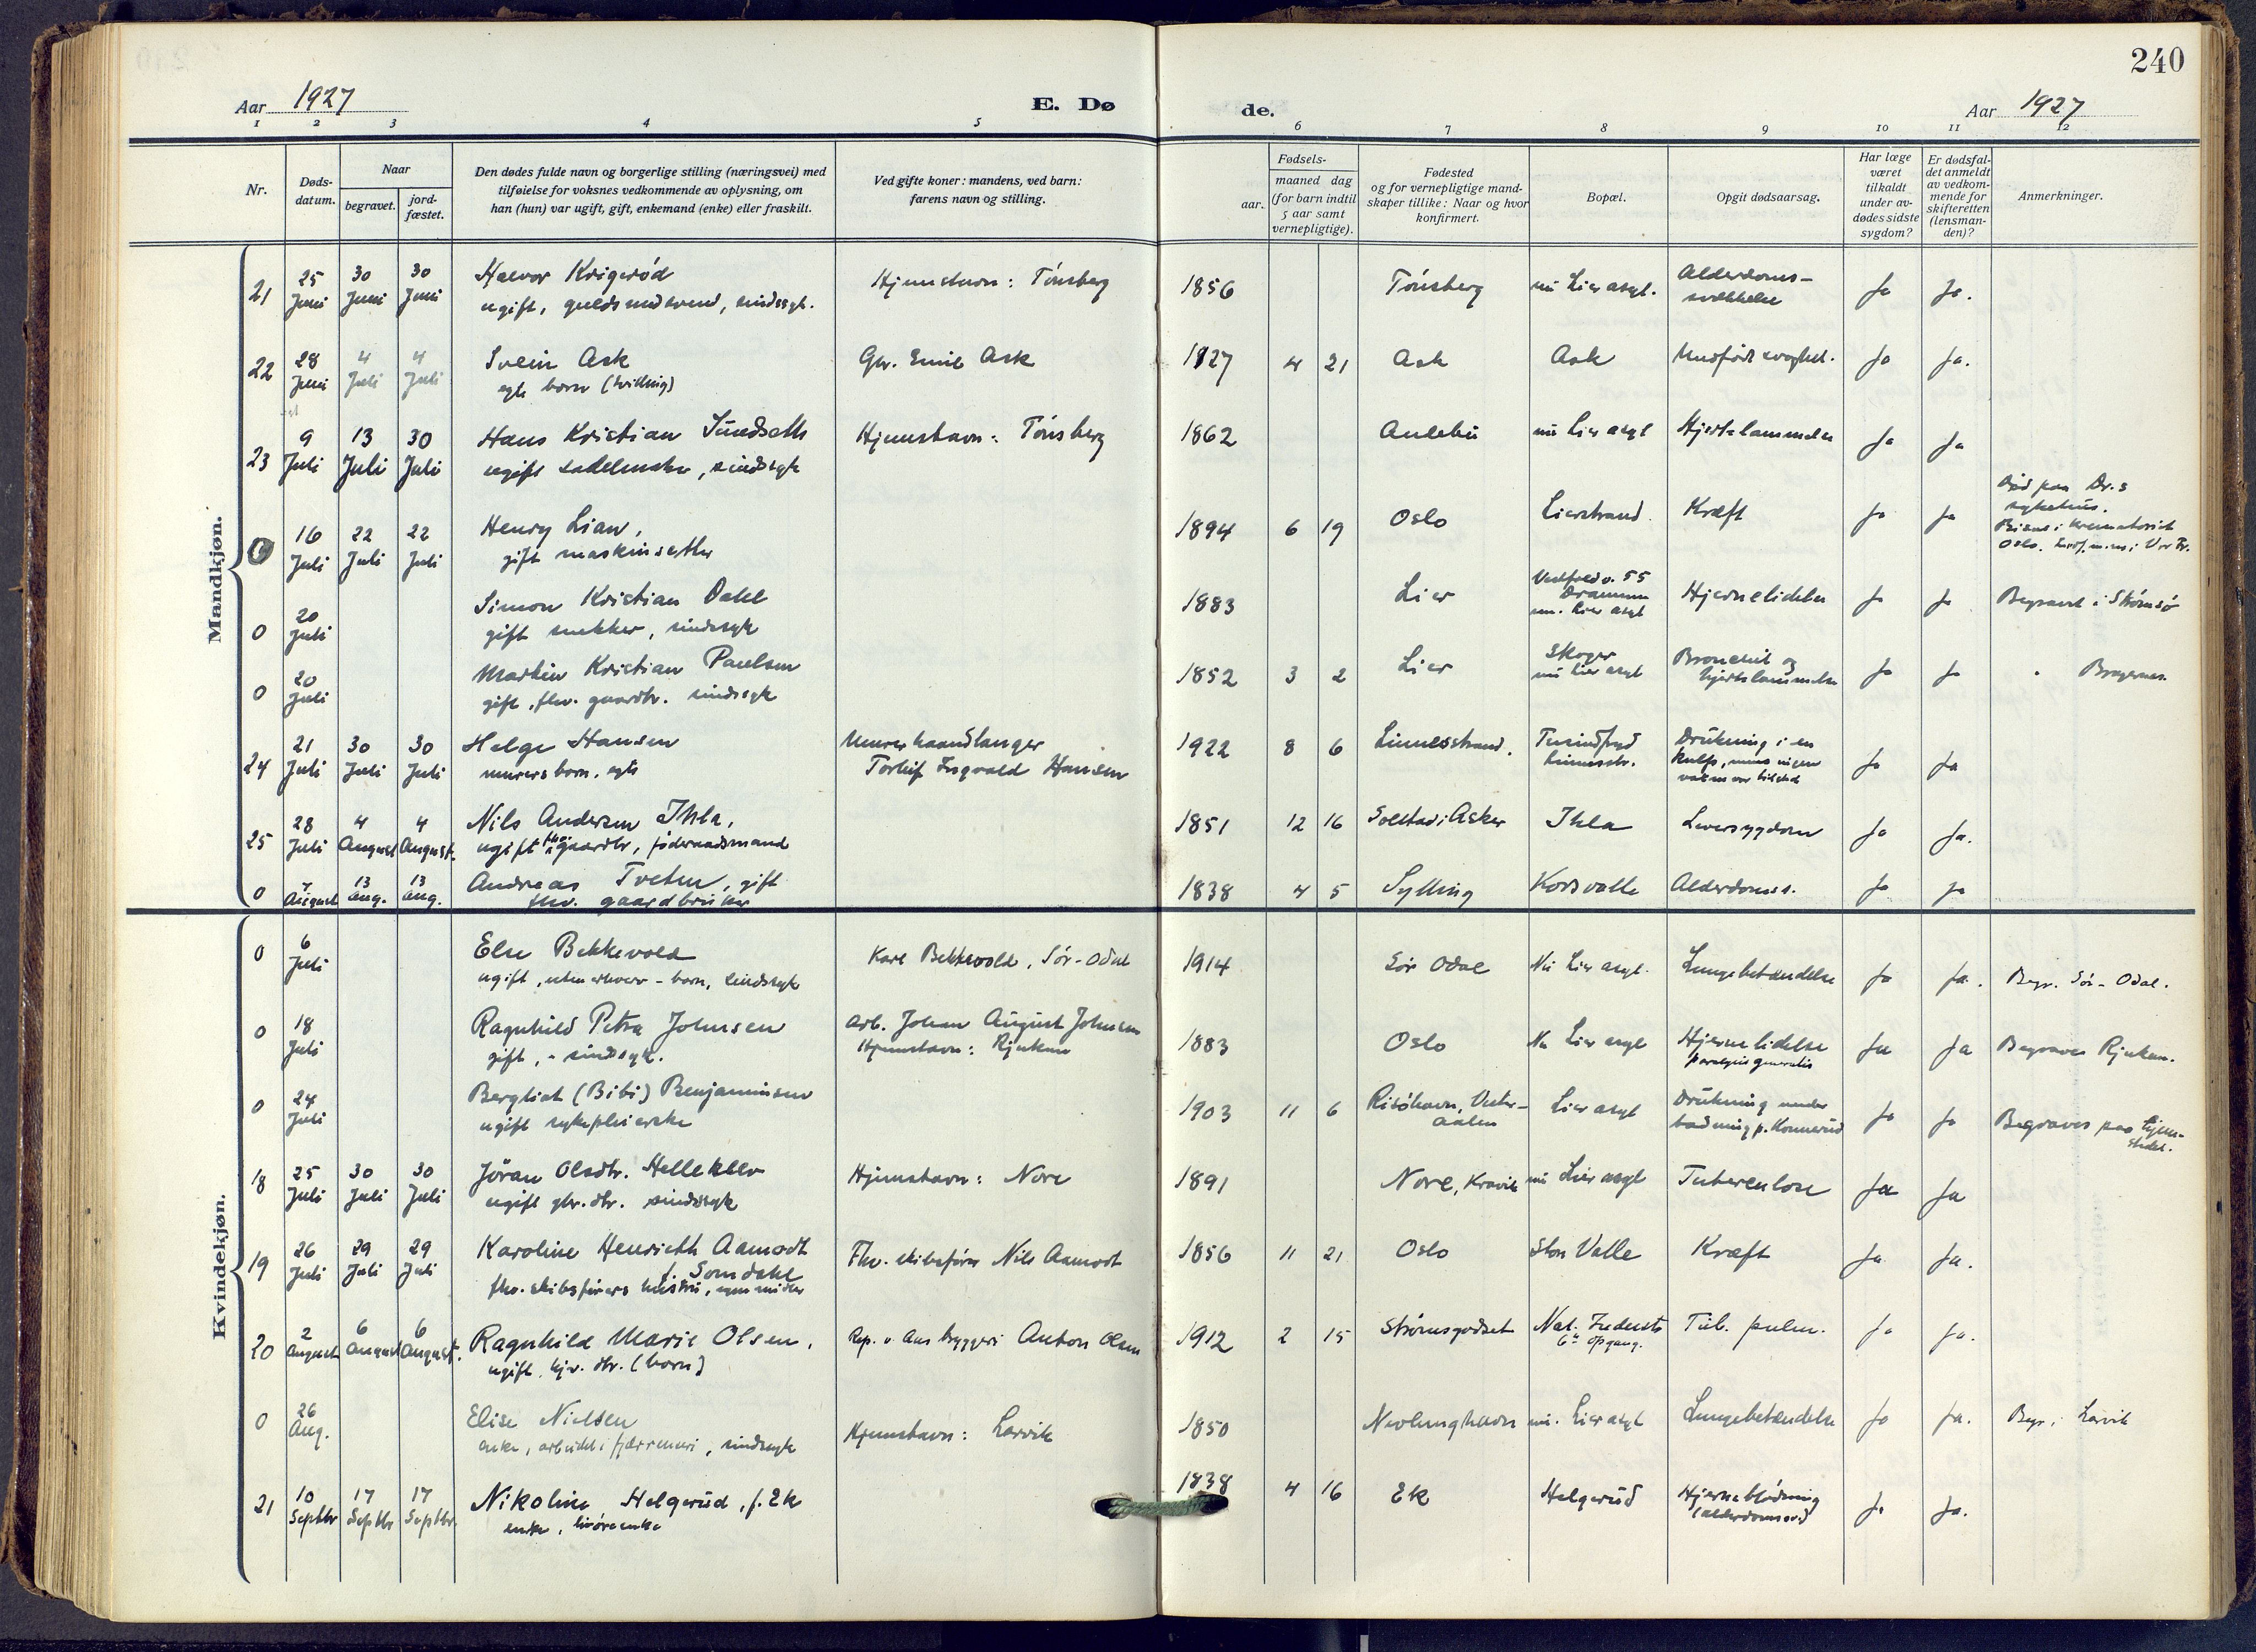 240
Aar 1927
E. Dø
de.
Aar 1927
1 2 3 4 5 6 7 8 9 10 11 12
Nr.
Døds-
datum.
Naar
begravet.
jord-
fæstet.
Den dødes fulde navn og borgerlige stilling (næringsvei) med
tilføielse for voksnes vedkommende av oplysning, om
han (hun) var ugift, gift, enkemand (enke) eller fraskilt.
Ved gifte koner: mandens, ved barn:
farens navn og stilling.
Fødsels-
aar.
maaned dag
(for barn indtil
5 aar samt
vernepligtige).
Fødested
og for vernepligtige mand-
skaper tillike: Naar og hvor
konfirmert.
Bopæl.
Opgit dødsaarsag.
Har læge
været
tilkaldt
under av-
dødes sidste
sygdom?
Er dødsfal-
det anmeldt
av vedkom-
mende for
skifteretten
(lensman-
den)?
Anmerkninger.
Mandkjøn.
21 25 Juni 30 Juni 30 Juni Halvor Krigerød
ugift, guldsmedsvend, sindssyk.
Hjemstavn: Tønsberg 1856 Tønsberg nu Lier asyl. Alderdoms-
svækkelse Ja Ja.
22 28 Juni 4 Juli 4 Juli Svein Ask
egte barn (tvilling)
Gbr. Emil Ask 1927 4 21 Ask Ask Medfødt svaghet. Ja Ja.
23 9 Juli 13 Juli 30 Juli Hans Kristian Sundseth
ugift sadelmaker, sindssyk
Hjemstavn: Tønsberg 1862 Aulebu nu Lier asyl Hjertelammelse Ja Ja
0 16 Juli 22 Juli 22 Juli Henry Lian,
gift maskinsetter
1894 6 19 Oslo Lierstrand Kræft Ja Ja
Død paa Dr.s
sykehus.
i krematoriet
Oslo.
0 20 Juli Simon Kristian Dahl
gift snekker, sindssyk
1883 Lier 55
Drammen
nu Lier asyl
Hjernelidelse Ja Ja Begravet i Strømsø
0 20 Juli Martin Kristian Paulsen
gift, fhv. gaardbr. sindssyk
1852 3 2 Lier Skoger
nu Lier asyl
Bronchit og
hjertelammelse Ja Ja " Bragernes
24 21 Juli 30 Juli 30 Juli Helge Hansen
murers barn, egte
Murerhaandlanger
Torleif Ingvald Hansen
1922 8 6 Linnesstrand.
Linnesstr.
Drukning i en
kulp, mens ingen
voksen var tilstede Ja Ja
25 28 Juli 4 August 4 August. Nils Andersen Ihla,
ugift fhv. gaardbr, føderaadsmand
1851 12 16 Solstad i Asker Ihla Leversygdom Ja Ja.
0 7 August 13 Aug. 13 Aug. Andreas Tveten, gift
fhv. gaardbruker
1838 4 5 Sylling Korsvolle Alderdomss. Ja Ja
Kvindekjøn.
0 6 Juli Else Bekkevold
ugift, uten erhverv - barn, sindssyk
Karl Bekkevold, Sør-Odal 1914 Sør Odal Nu Lier asyl. Lungebetændelse Ja Ja. Begr. Sør-Odal.
0 18 Juli Ragnhild Petra Johnsen
gift, - sindssyk.
Arb. Johan August Johnsen
Hjemstavn: Rjukan
1883 Oslo Nu Lier asyl Hjernelidelse
paralysis generalis Ja Ja Begraves Rjukan.
0 24 Juli Bergliot (Bibi) Benjaminsen
ugift sykepleierske
1903 11 6 Risøhavn, Vester-
aalen
Lier asyl Drukning under
badning p. Konnerud Ja Ja Begraves paa hjem-
stedet.
18 25 Juli 30 Juli 30 Juli Jøran Olsdtr. Helleklev
ugift gbr. dtr. sindssyk
Hjemstavn: Nore 1891 Nore, Kravik nu Lier asyl Tuberculose Ja Ja
19 26 Juli 29 Juli 29 Juli Karoline Henriette Aamodt
f. Somdahl
fhv. skibsførers hustru, egne midler
Fhv. skibsfører Nils Aamodt 1856 11 21 Oslo Store Valle Kræft Ja Ja.
20 2 August 6 August 6 August. Ragnhild Marie Olsen,
ugift, hjv. dtr. (barn)
Rep. v. Aass bryggeri Anton Olsen 1912 2 15 Strømsgodset
opgang.
Tub. pulm. Ja Ja.
0 26 Aug. Elise Nielsen
enke, arbeidet i fjærrenseri, sindssyk
Hjemstavn: Larvik 1850 Nevlunghavn nu. Lier asyl Lungebetændelse Ja Ja. Begr. i Larvik
21 10 Septbr 17 Septbr 17 Septbr. Nikoline Helgerud, f. Ek
enke, livøreenke
1838 4 16 Ek Helgerud Hjerneblødning
(alderdomssv.) Ja Ja.